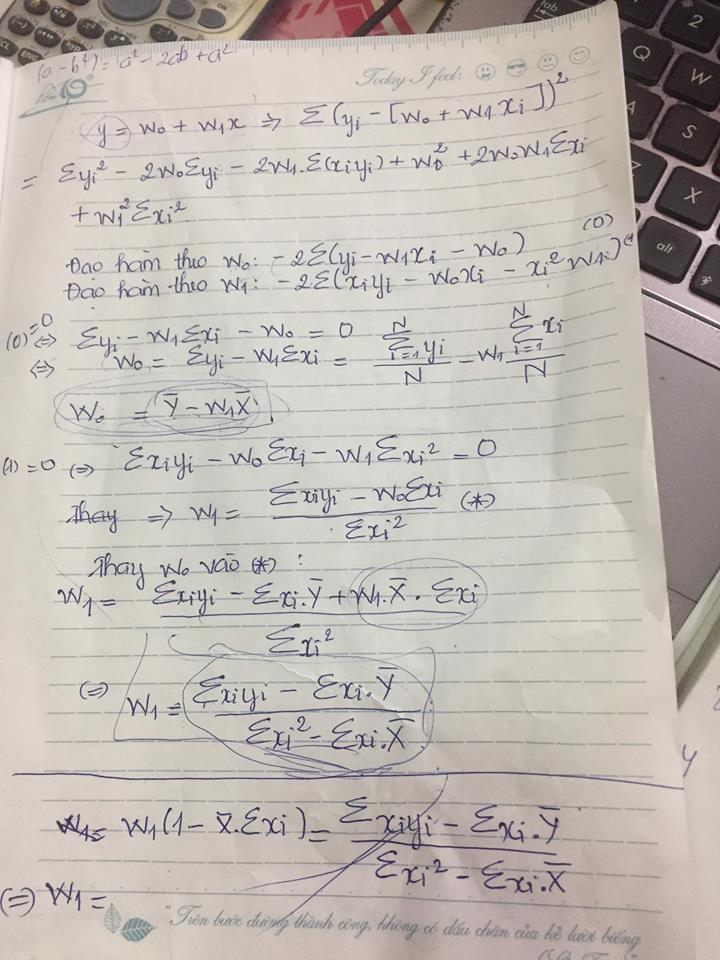 (a-b²) = a² - 2ab + a²
Today I feel:
y = w₀ + w₁x ⇒ Σ(yᵢ - [w₀ + w₁xᵢ])²
= Σyᵢ² - 2w₀Σyᵢ - 2w₁.Σ(xᵢyᵢ) + w₀² + 2w₀w₁Σxᵢ
+ w₁²Σxᵢ²
(0)
Đạo hàm theo w₀: -2Σ(yᵢ - w₁xᵢ - w₀)
Đạo hàm theo w₁: -2.Σ(xᵢyᵢ - w₀xᵢ - xᵢ²w₁)
(0) =0 ⇔ Σyᵢ - w₁Σxᵢ - w₀ = 0
⇔ w₀ = Σyᵢ - w₁Σxᵢ = Σᵢ₌₁ᴺ yᵢ / N - w₁ Σᵢ₌₁ᴺ xᵢ / N
w₀ = Y̅ - w₁X̅
(1) = 0 ⇔ Σxᵢyᵢ - w₀Σxᵢ - w₁Σxᵢ² = 0
Thay ⇒ w₁ = (Σxᵢyᵢ - w₀Σxᵢ) / Σxᵢ² (*)
Thay w₀ vào (*) :
w₁ = (Σxᵢyᵢ - Σxᵢ.Y̅ + w₁.X̅ . Σxᵢ) / Σxᵢ²
(=) w₁ = (Σxᵢyᵢ - Σxᵢ.Y̅) / (Σxᵢ² - Σxᵢ.X̅)
w₁= w₁(1 - X̅.Σxᵢ) = (Σxᵢyᵢ - Σxᵢ.Y̅) / (Σxᵢ² - Σxᵢ.X̅)
(=) w₁ =
"Trên bước đường thành công, không có dấu chân của kẻ lười biếng
tab
Q
W
A
S
Z
X
alt
2